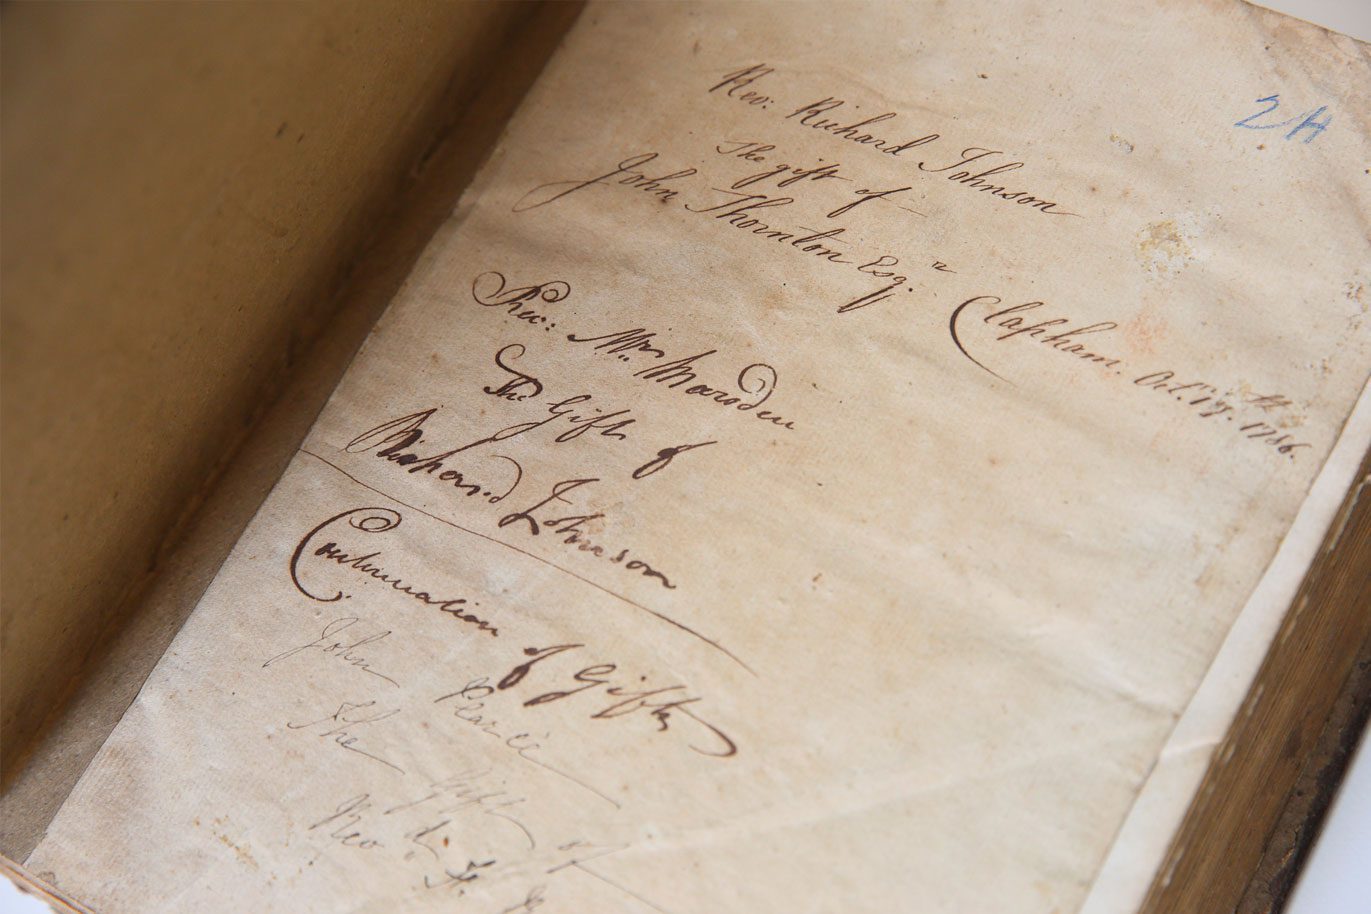 2H
Rev: Richard Johnson
The gift of
John Thornton Esq.r Clapham. Oct. 1786.
Rev: Mr Marsden
The Gift of
Richard Johnson
Continuation of Gifts
John Pearce
The Gift of
Rev d. F.